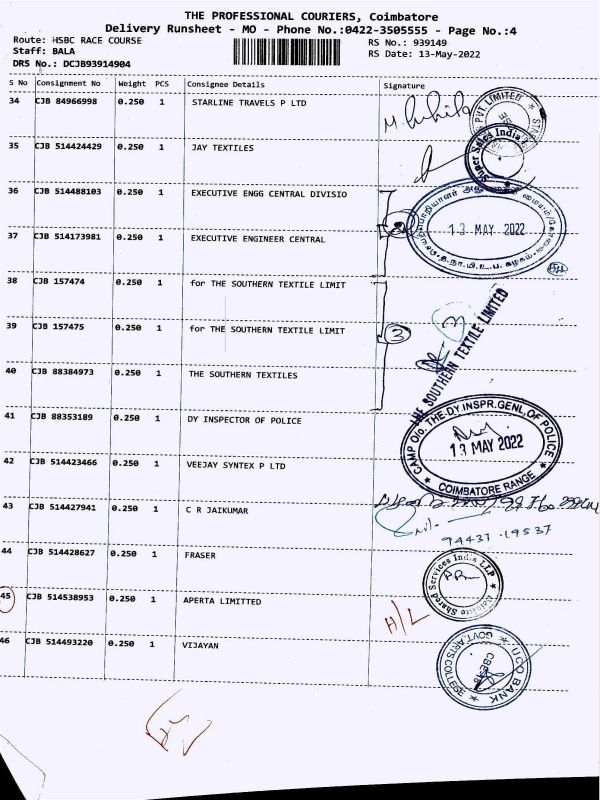 THE PROFESSIONAL COURIERS, Coimbatore
Delivery Runsheet - MO - Phone No.:0422-3505555 - Page No.:4
Route: HSBC RACE COURSE
RS No.: 939149
Staff: BALA
RS Date: 13-May-2022
DRS No.: DCJB93914904
S No Consignment No Weight PCS Consignee Details Signature
34 CJB 84966998 0.250 1 STARLINE TRAVELS P LTD
PVT. LIMITED
35 CJB 514424429 0.250 1 JAY TEXTILES
36 CJB 514488103 0.250 1 EXECUTIVE ENGG CENTRAL DIVISIO
37 CJB 514173981 0.250 1 EXECUTIVE ENGINEER CENTRAL
13 MAY 2022
38 CJB 157474 0.250 1 for THE SOUTHERN TEXTILE LIMIT
39 CJB 157475 0.250 1 for THE SOUTHERN TEXTILE LIMIT
3
THE SOUTHERN TEXTILE LIMITED
40 CJB 88384973 0.250 1 THE SOUTHERN TEXTILES
41 CJB 88353189 0.250 1 DY INSPECTOR OF POLICE
CAMP O/o. THE DY.INSPR.GENL.OF POLICE
13 MAY 2022
COIMBATORE RANGE
42 CJB 514423466 0.250 1 VEEJAY SYNTEX P LTD
43 CJB 514427941 0.250 1 C R JAIKUMAR
94437-19537
44 CJB 514428627 0.250 1 FRASER
Deloitte Shared Services India LLP
45 CJB 514538953 0.250 1 APERTA LIMITTED
H/L
46 CJB 514493220 0.250 1 VIJAYAN
UCO BANK
GOVT. ARTS COLLEGE